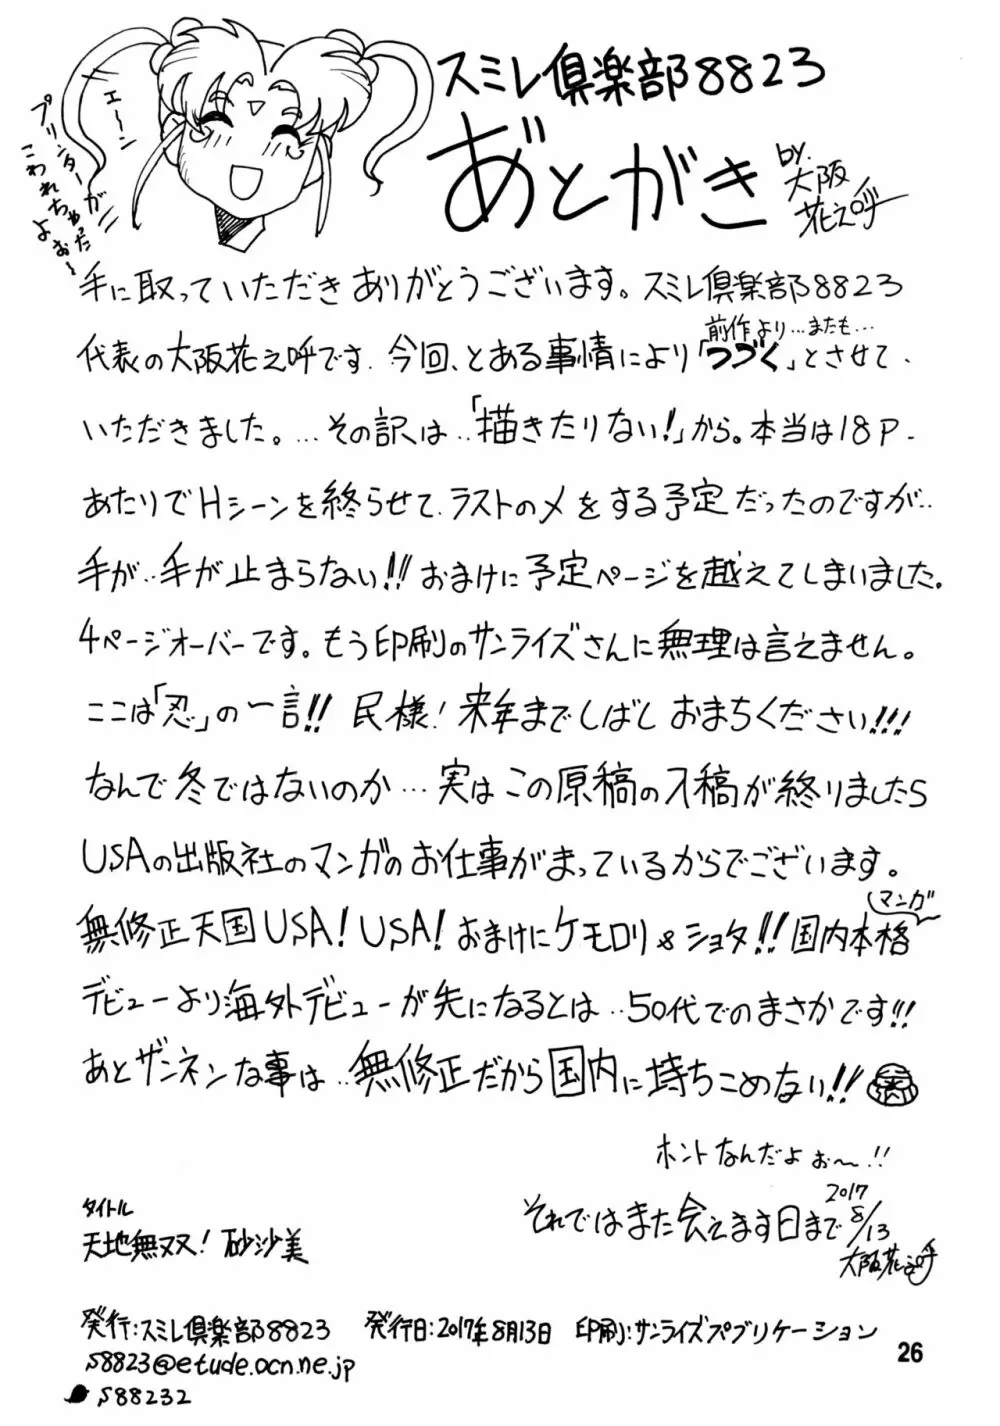 スミレ倶楽部8823
あとがき
by.大阪
花之呼
エーン
プリンターが
こわれちゃった
よぉ〜
手に取っていただきありがとうございます。スミレ倶楽部8823
代表の大阪花之呼です。今回、とある事情により「つづく」とさせて、
前作より…またも…
いただきました。…その訳は‥「描きたりない!」から。本当は18P.
あたりでHシーンを終らせて、ラストの〆をする予定だったのですが‥
手が‥手が止まらない!!おまけに予定ページを越えてしまいました。
4ページオーバーです。もう印刷のサンライズさんに無理は言えません。
ここは「忍」の一言!!民様!来年までしばしおまちください!!!
なんで冬ではないのか…実はこの原稿の入稿が終りましたら
USAの出版社のマンガのお仕事がまっているからでございます。
無修正天国USA!USA!おまけにケモロリ&ショタ!!国内本格
マンガ
デビューより海外デビューが先になるとは‥50代でのまさかです!!
あとザンネンな事は‥無修正だから国内に持ちこめない!!
ホントなんだよぉ〜!!
それではまた会えます日まで
2017
8/13
大阪花之呼
タイトル
天地無双!砂沙美
発行:スミレ倶楽部8823 発行日:2017年8月13日 印刷:サンライズプブリケーション
s8823@etude.ocn.ne.jp
s88232
26